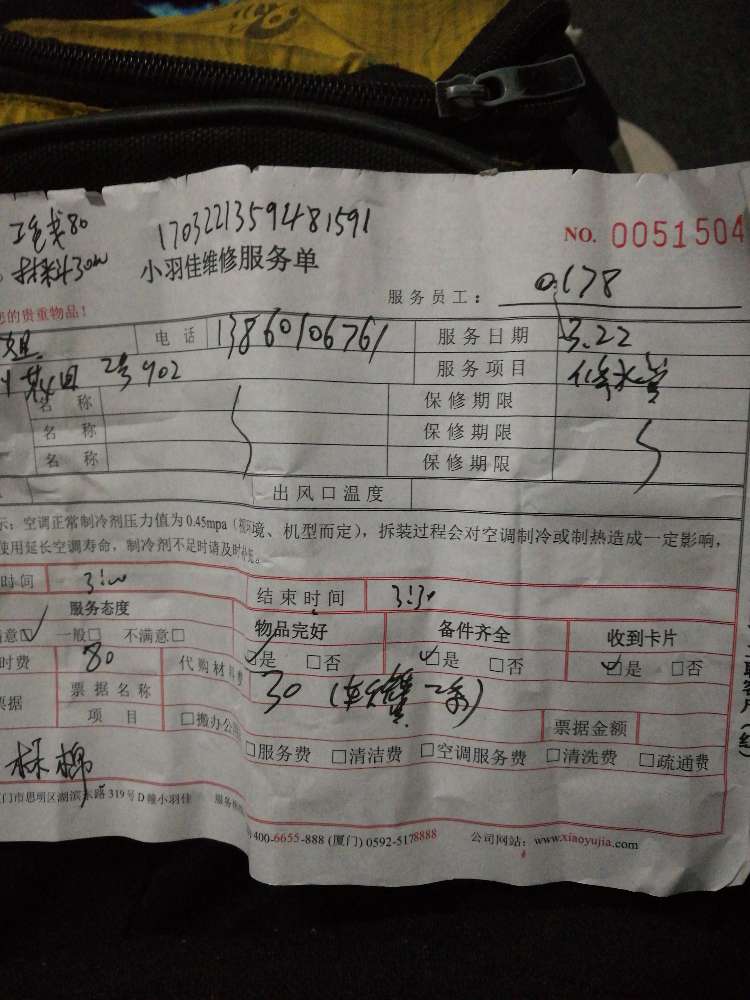 工色戋80
17032213594481591
NO. 0051504
材料30
小羽佳维修服务单
服务员工: 0178
您的贵重物品!
姐 电话 13860106761 服务日期 3.22
2号902 服务项目 修水管
名称 保修期限
名称 保修期限
名称 保修期限
出风口温度
示: 空调正常制冷剂压力值为 0.45mpa (视环境、机型而定), 拆装过程会对空调制冷或制热造成一定影响,
使用延长空调寿命, 制冷剂不足时请及时补充。
时间 3:00 结束时间 3:30
服务态度 物品完好 备件齐全 收到卡片
满意☑ 一般□ 不满意□ ☑是 □否 ☑是 □否 ☑是 □否
时费 80 代购材料费 30 (软管二条)
票据 票据名称 票据金额
项目 □搬办公 □服务费 □清洁费 □空调服务费 □清洗费 □疏通费
林棉
厦门市思明区湖滨东路 319号D幢小羽佳 服务
400-6655-888 (厦门) 0592-5178888 公司网站: www.xiaoyujia.com